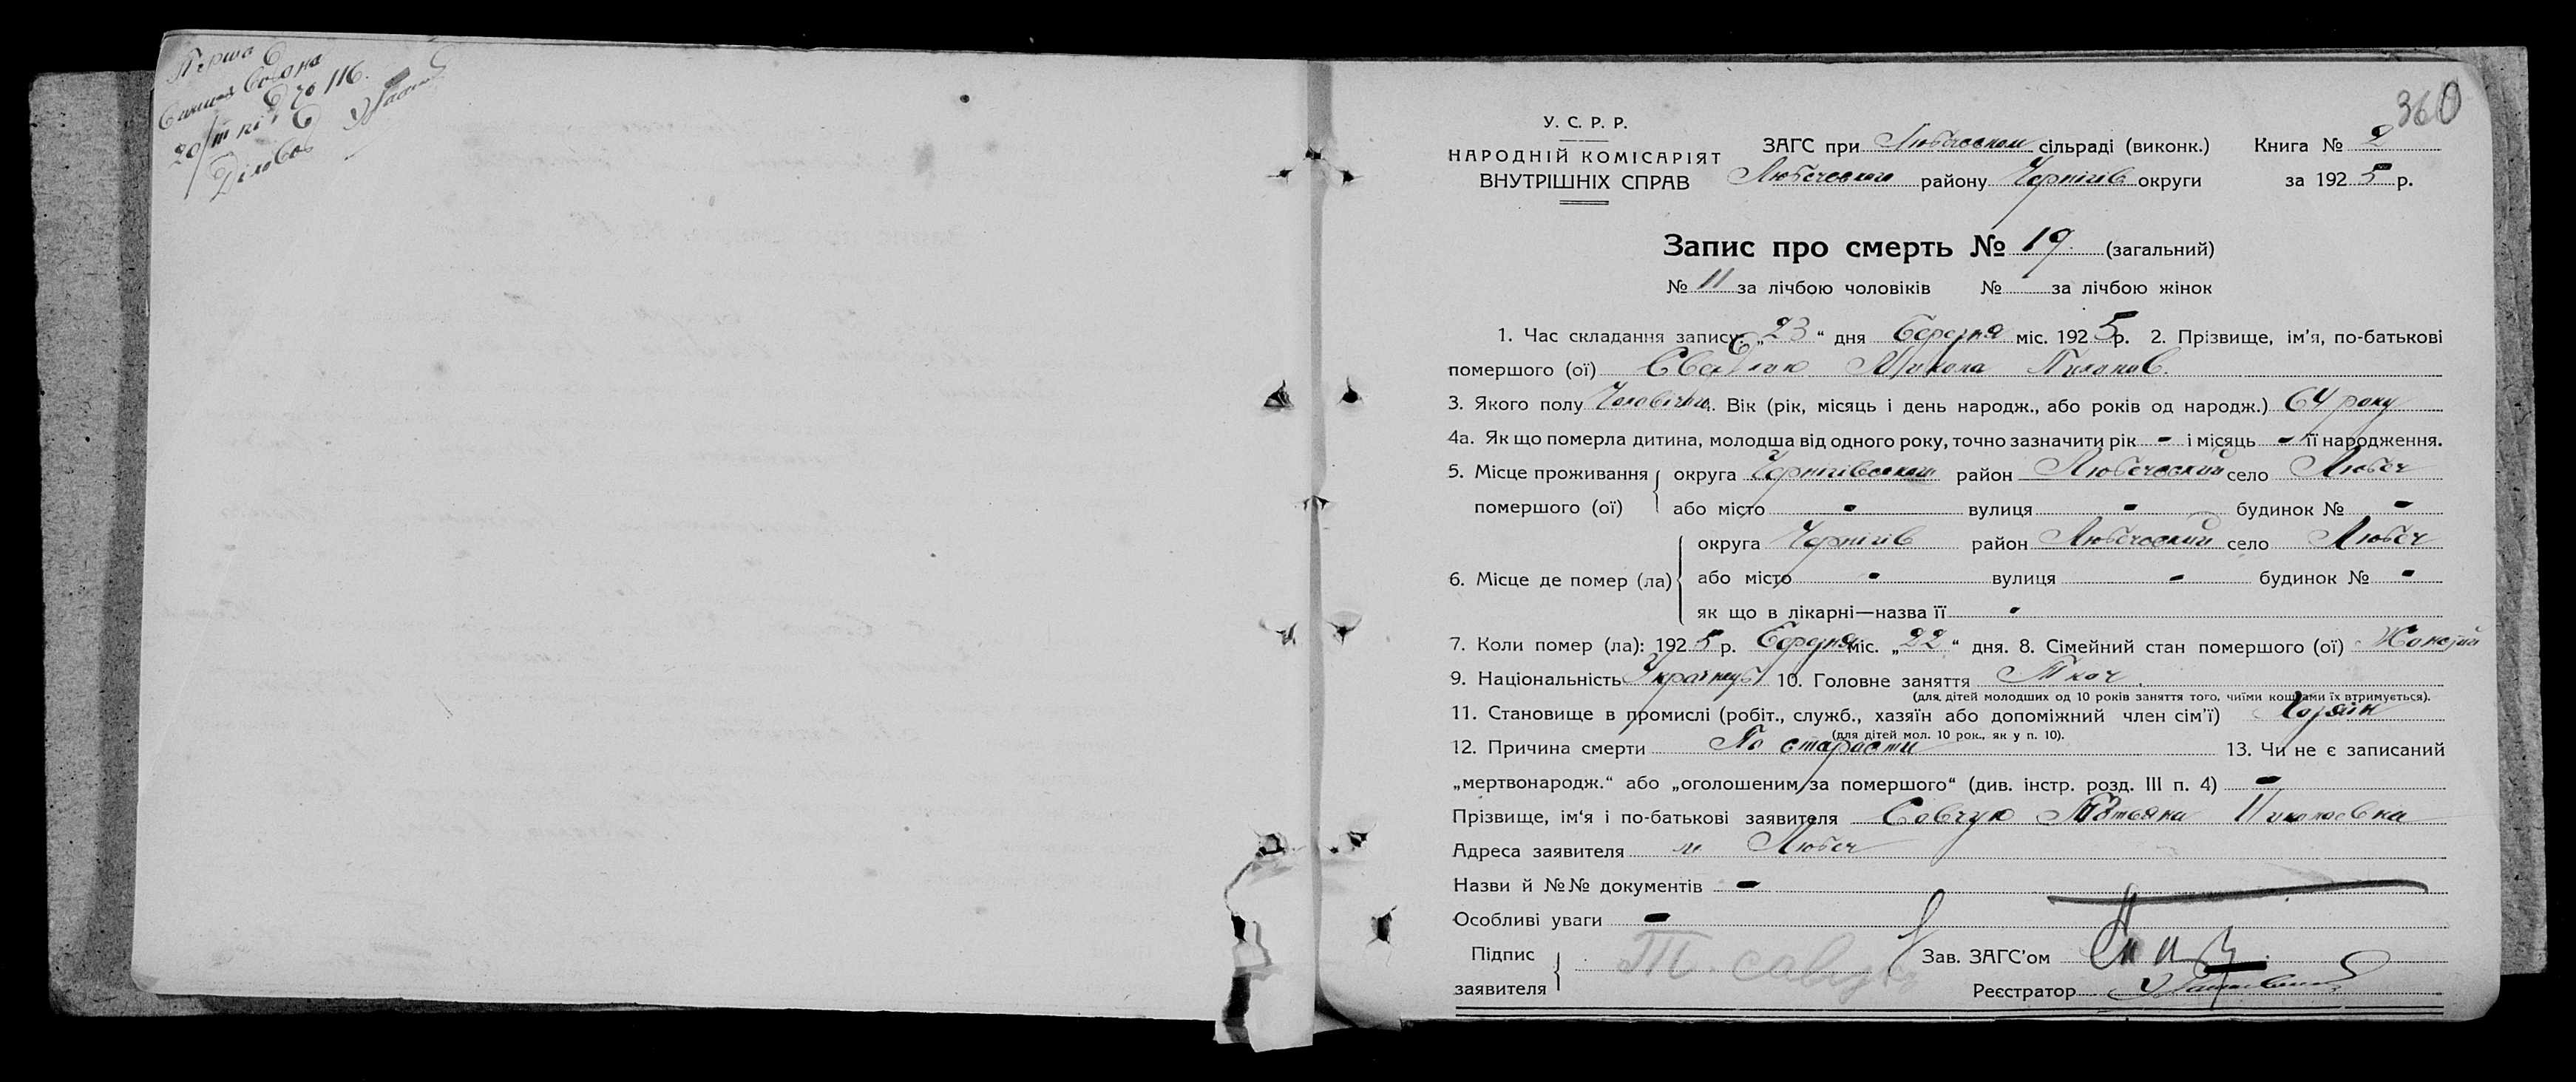 360
У. С. Р. Р.
НАРОДНІЙ КОМІСАРІЯТ
ВНУТРІШНІХ СПРАВ
ЗАГС при Любеческом сільраді (виконк.) Книга № 2
Любечского району Чернігів округи за 1925 р.
Запис про смерть № 19 (загальний)
№ 11 за лічбою чоловіків № за лічбою жінок
1. Час складання запису: „23“ дня Березня міс. 1925 р. 2. Прізвище, ім’я, по-батькові
помершого (ої) Микола Пилипов.
3. Якого полу Чоловічий. Вік (рік, місяць і день народж., або років од народж.) 64 року
4а. Як що померла дитина, молодша від одного року, точно зазначити рік - і місяць - її народження.
5. Місце проживання помершого (ої) округа Чернігівском район Любечевский село Любеч
або місто - вулиця - будинок № -
6. Місце де помер (ла) округа Чернігів район Любечевский село Любеч
або місто - вулиця - будинок № -
як що в лікарні—назва її -
7. Коли помер (ла): 1925 р. Березня міс. „22“ дня. 8. Сімейний стан помершого (ої)
9. Національність Українець 10. Головне заняття Ткач.
(для дітей молодших од 10 років заняття того, чиїми коштами їх втримується).
11. Становище в промислі (робіт., служб., хазяїн або допоміжний член сім’ї) Хозяїн
(для дітей мол. 10 рок., як у п. 10).
12. Причина смерти По старости 13. Чи не є записаний
„мертвонародж.“ або „оголошеним за помершого“ (див. інстр. розд. III п. 4) -
Прізвище, ім’я і по-батькові заявителя Савчук Татьяна Николаевна
Адреса заявителя м Любеч
Назви й №№ документів -
Особливі уваги -
Підпис заявителя Т. Савчук
Зав. ЗАГС’ом
Реєстратор